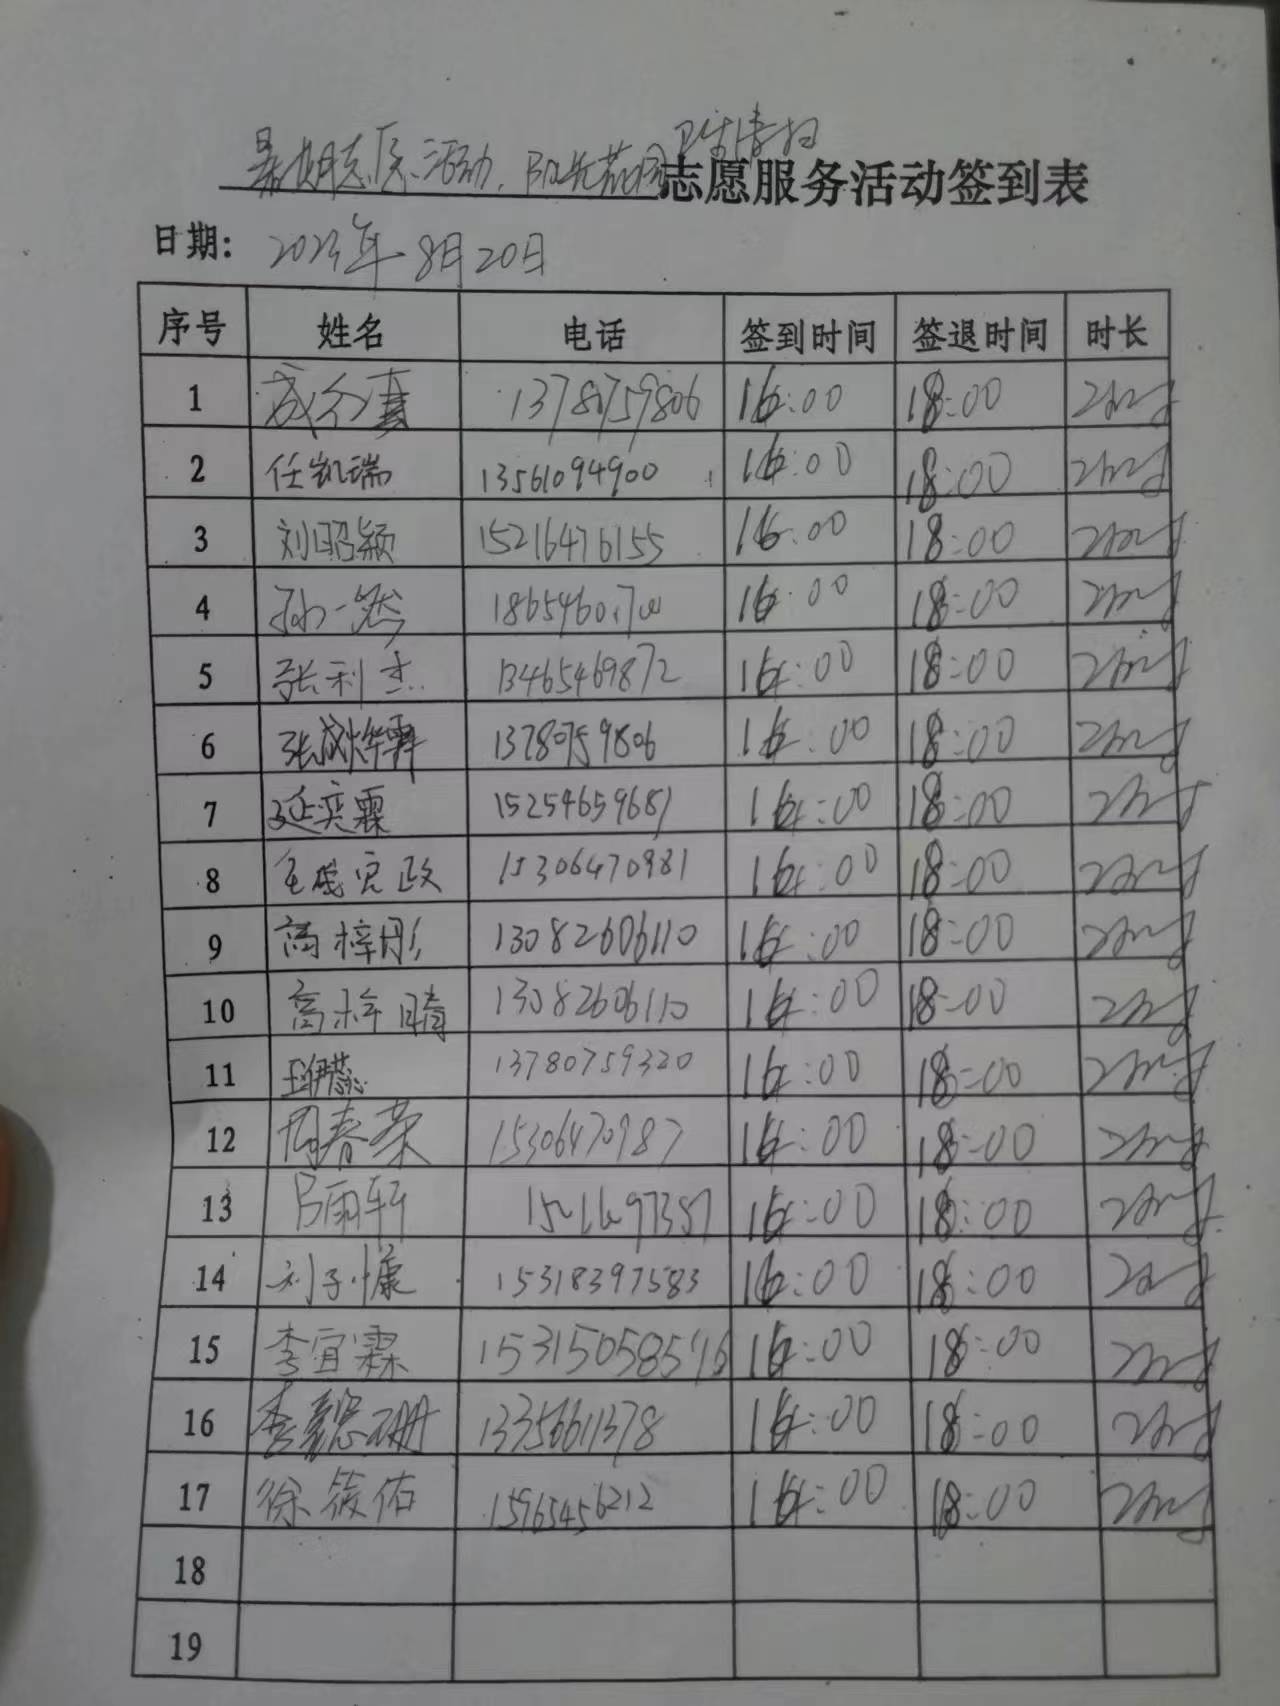 暑期志愿活动. 阳光花园卫生清扫
志愿服务活动签到表
日期: 2023年8月20日
序号 姓名 电话 签到时间 签退时间 时长
1 13780759806 16:00 18:00 2小时
2 任凯瑞 13561094900 16:00 18:00 2小时
3 刘昭颖 15216476155 16:00 18:00 2小时
4 孙一然 16:00 18:00 2小时
5 张利杰 13465469872 16:00 18:00 2小时
6 13780759806 16:00 18:00 2小时
7 延奕霖 15254659681 16:00 18:00 2小时
8 15306470981 16:00 18:00 2小时
9 高梓彤 13082606110 16:00 18:00 2小时
10 高梓晴 13082606110 16:00 18:00 2小时
11 13780759320 16:00 18:00 2小时
12 周春荣 15306470987 16:00 18:00 2小时
13 吕雨轩 16:00 18:00 2小时
14 刘子慷 15318397583 16:00 18:00 2小时
15 李宜霖 153150585776 16:00 18:00 2小时
16 13356611378 16:00 18:00 2小时
17 徐筱佑 15965456212 16:00 18:00 2小时
18
19